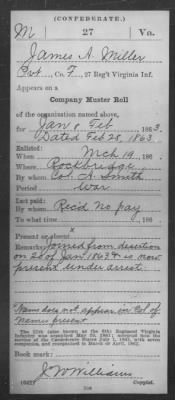 (CONFEDERATE.)
M 27 Va.
James A. Miller
Pvt, Co. F, 27 Reg't Virginia Inf.
Appears on a
Company Muster Roll
of the organization named above,
for Jan & Feb, 1863.
Dated Feb 28, 1863
Enlisted:
When Mch 19, 186
Where Rockbridge
By whom Col. A. Smith
Period War
Last paid:
By whom Rec'd no pay
To what time , 186
Present or absent x
Remarks: Joined from desertion
on 26 of Jan. 1863 & is now
present under arrest.
x Name does not appear in Col. of
Names present.
The 27th (also known as the 6th) Regiment Virginia
Infantry was organized May 30, 1861; accepted into the
service of the Confederate States July 1, 1861, with seven
companies, and reorganized in
Book mark:
J W Williams
(642) Copyist.